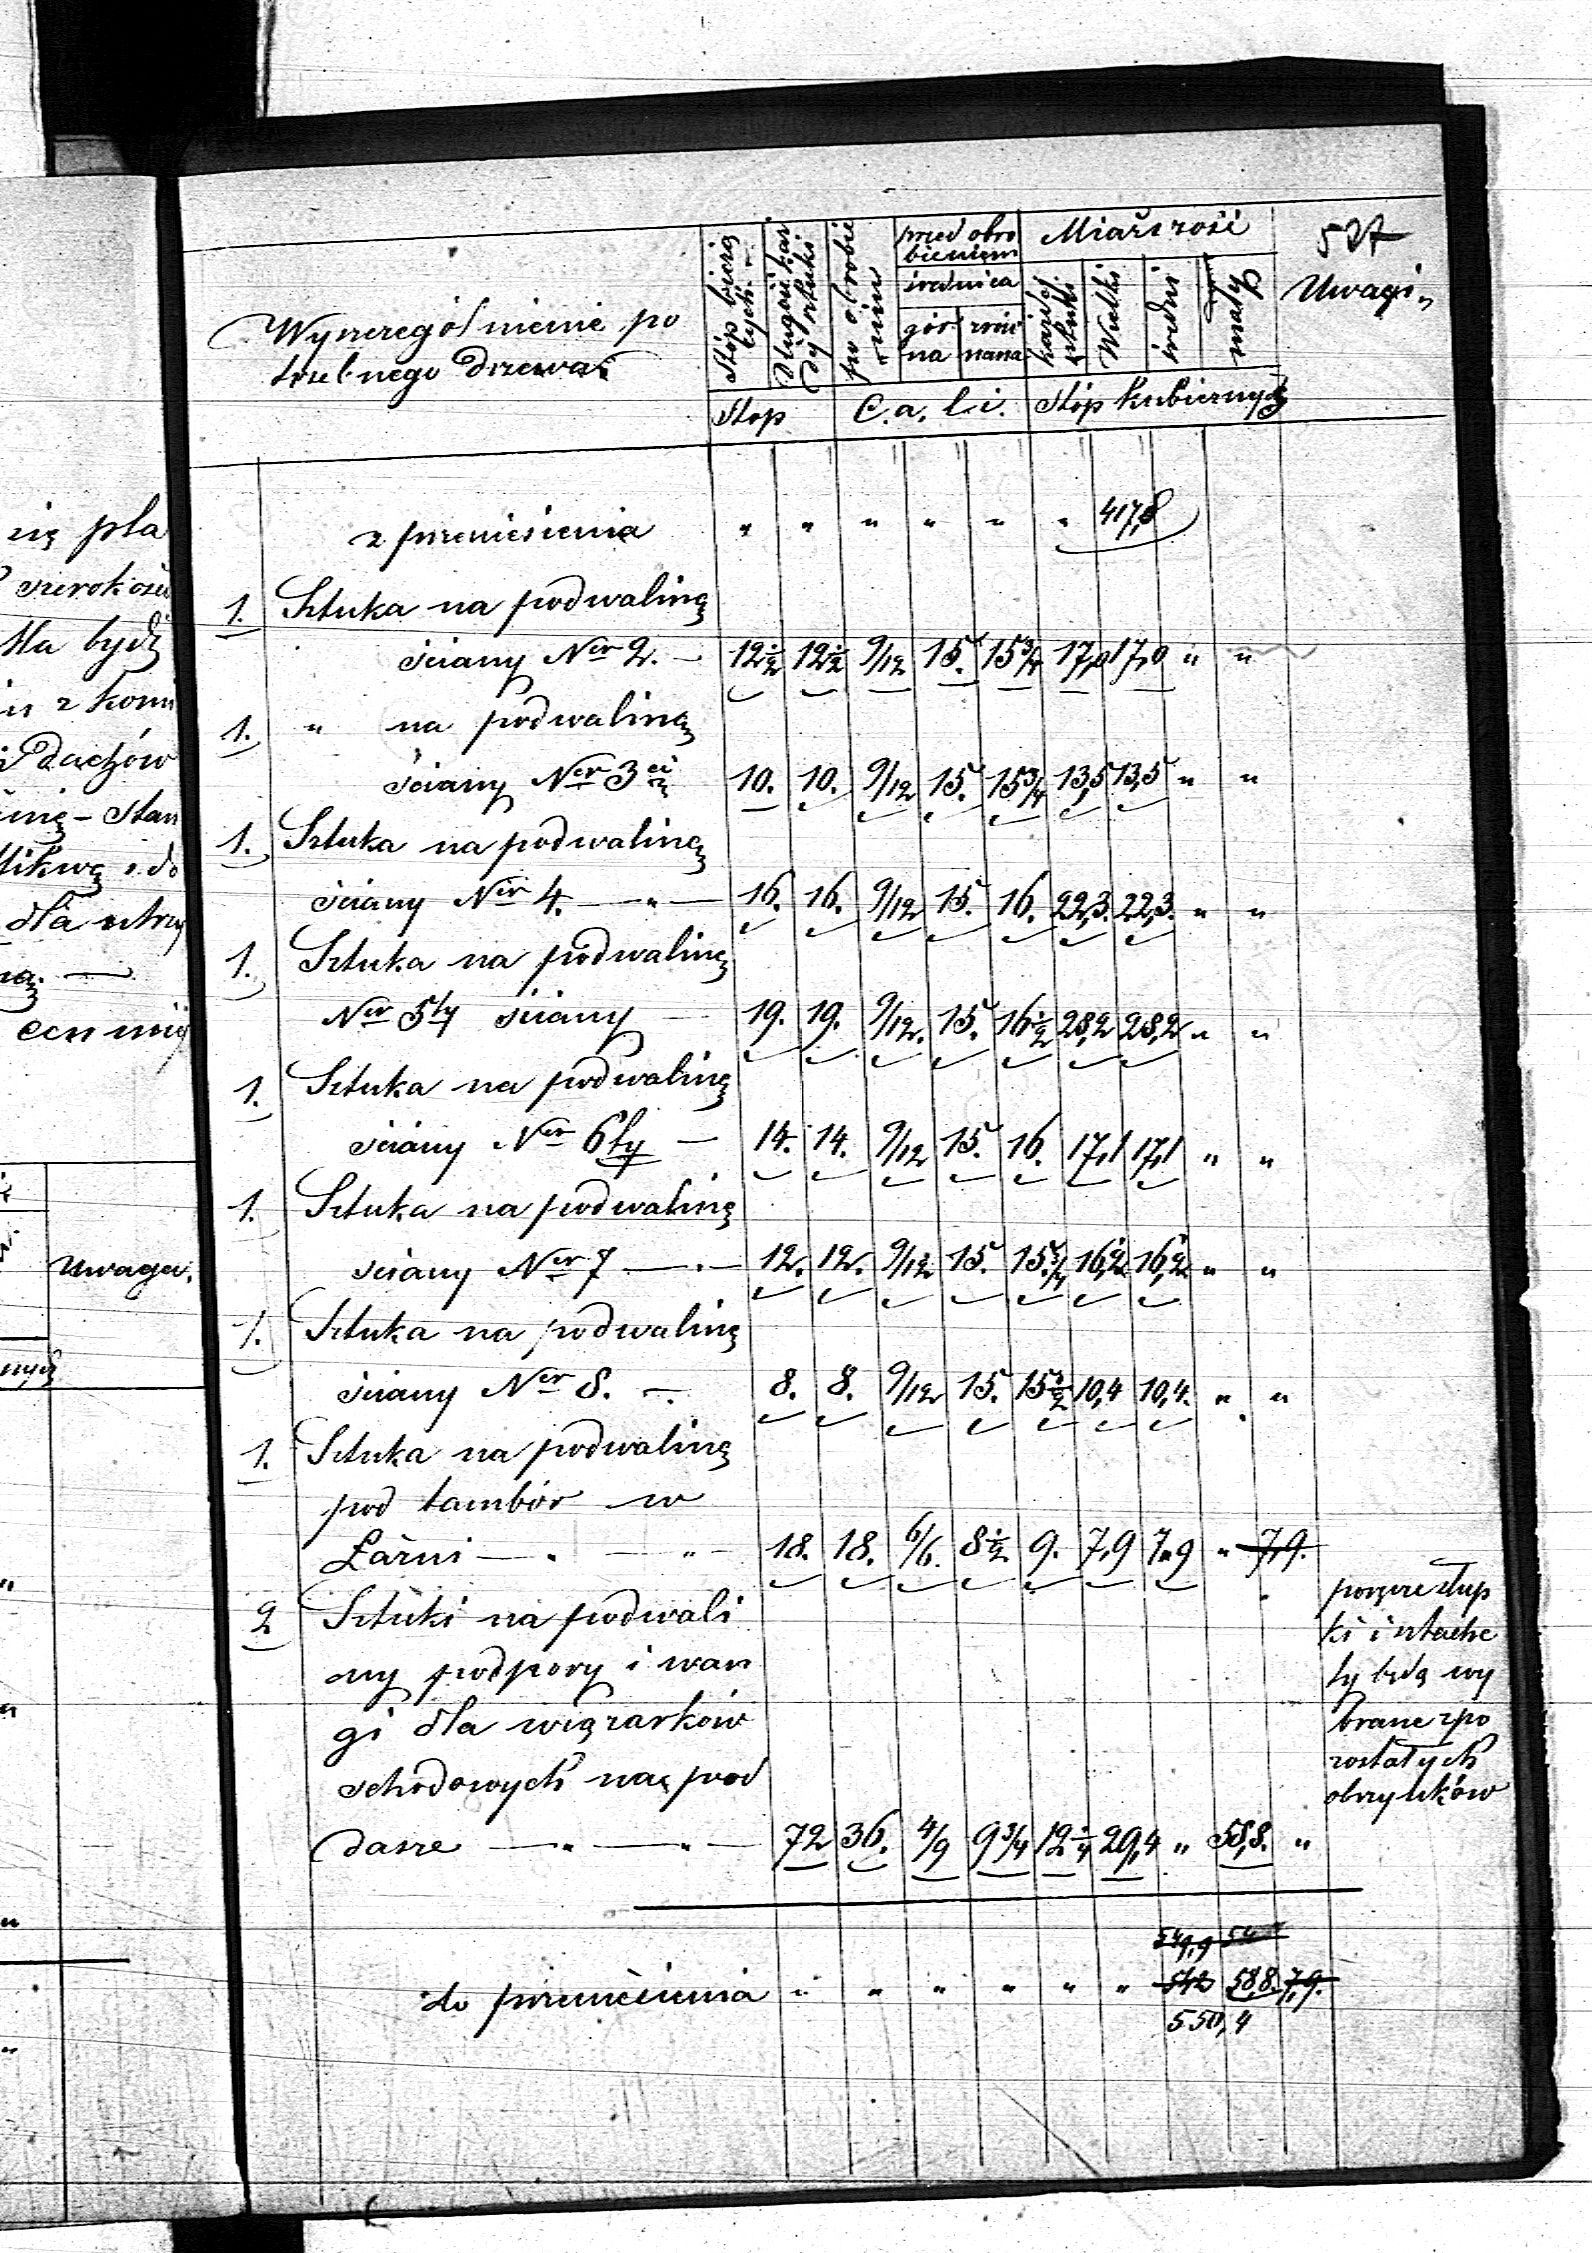 się pła
szerokości
dachów
Stan
dla utrzy
Uwaga.
527
Uwagi
Wyszczególnienie po
trzebnego Drzewa
Stóp bieżą
cych
Długość każ
dy sztuki
po obrobie
niu
przed obro
bieniem
średnica
gór
na
zrów
nana
Miąższość
każdej
sztuki
Wielki
średni
mały
Stóp
C.a.l.i.
Stóp kubicznych
z przeniesienia " " " " " " 417,8
1. Sztuka na podwalinę
ściany Ner 2. — 12½ 12½ 9/12 15. 15¾ 17,0 17,0 " "
1. " na podwalinę
ściany Ner 3ci 10. 10. 9/12 15. 15¾ 13,5 13,5 " "
1. Sztuka na podwalinę
ściany Ner 4. — " — 16. 16. 9/12 15. 16. 22,3. 22,3. " "
1. Sztuka na podwalinę
Ner 5ty ściany — 19. 19. 9/12. 15. 16½ 28,2 28,2 " "
1. Sztuka na podwalinę
ściany Ner 6ty — 14. 14. 9/12 15. 16. 17,1 17,1 " "
1. Sztuka na podwalinę
ściany Ner 7 — . — 12. 12. 9/12 15. 15¾ 16,2 16,2 " "
1. Sztuka na podwalinę
ściany Ner 8. — . 8. 8. 9/12 15. 15½ 10,4 10,4. " "
1. Sztuka na podwalinę
pod tambór w
Łaźni — . — " — 18. 18. 6/6. 8½ 9. 7,9 7,9 " 7,9.
2 Sztuki na podwali
ny podpory i wan
gi dla wiązarków
schodowych na pod
dasze — " — " — 72 36. 4/9 9¾ 12¼ 29,4 " 58,8. "
poprzestup
ki i sztache
ty będą wy
brane z po
zostałych
obrzynków
549,9 54
do przeniesienia " " " " " " 542 58,8. 7,9.
550,4